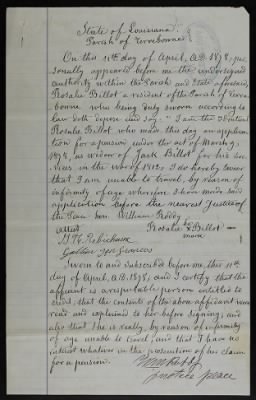 State of Louisiana
Parish of Terrebonne
On this 11th day of April, A.D. 1878, per-
sonally appeared before me the undersigned
authority within the Parish and State aforesaid,
Rosalie Billot a resident of the Parish of Terre
bonne who being duly sworn according to
law doth depose and say: "I am the identical
Rosalie Billot who made this day an applica
tion for a pension under the act of March 9,
1878, as widow of Jack Billot for his ser
vices in the war of 1812. I do hereby swear
that I am unable to travel, by reason of
infirmity of age wherefore I have made said
application before the nearest Justice of
the Peace Hon. William
Attest
Rosalie her x mark Billot
Robichaux
Sworn to and subscribed before me, this 11th
day of April, A.D. 1878, and I certify that the
affiant is a reputable person entitled to
credit, that the contents of the above affidavit were
read and explained to her before signing, and
also that she is really, by reason of infirmity
of age unable to travel, and that I have no
interest whatever in the prosecution of his claim
for a pension.
Justice Peace